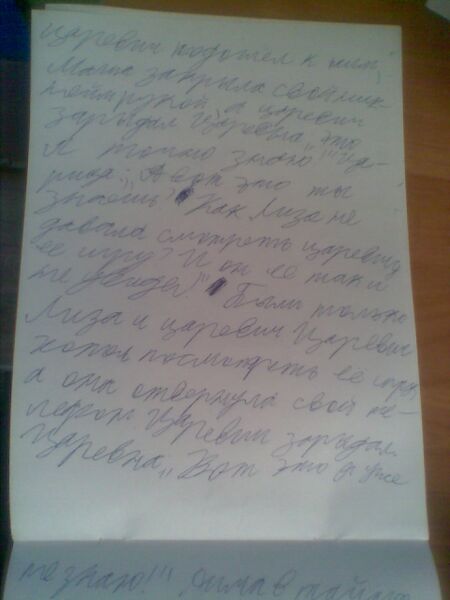 царевич подошел к ним,
Маша закрыла свой ник
нейм рукой, а царевич
зарыдал. Царевна „это
я точно знаю!" Ца-
рица: „А вот это ты
знаешь? Как Лиза не
давала смотреть царевичу
её игру? И он её так и
не увидел!" Были только
Лиза и царевич Царевич
хотел посмотреть её
а она отвернула свой те-
лефон. Царевич зарыдал.
Царевна „Вот это я уже
не знаю!"